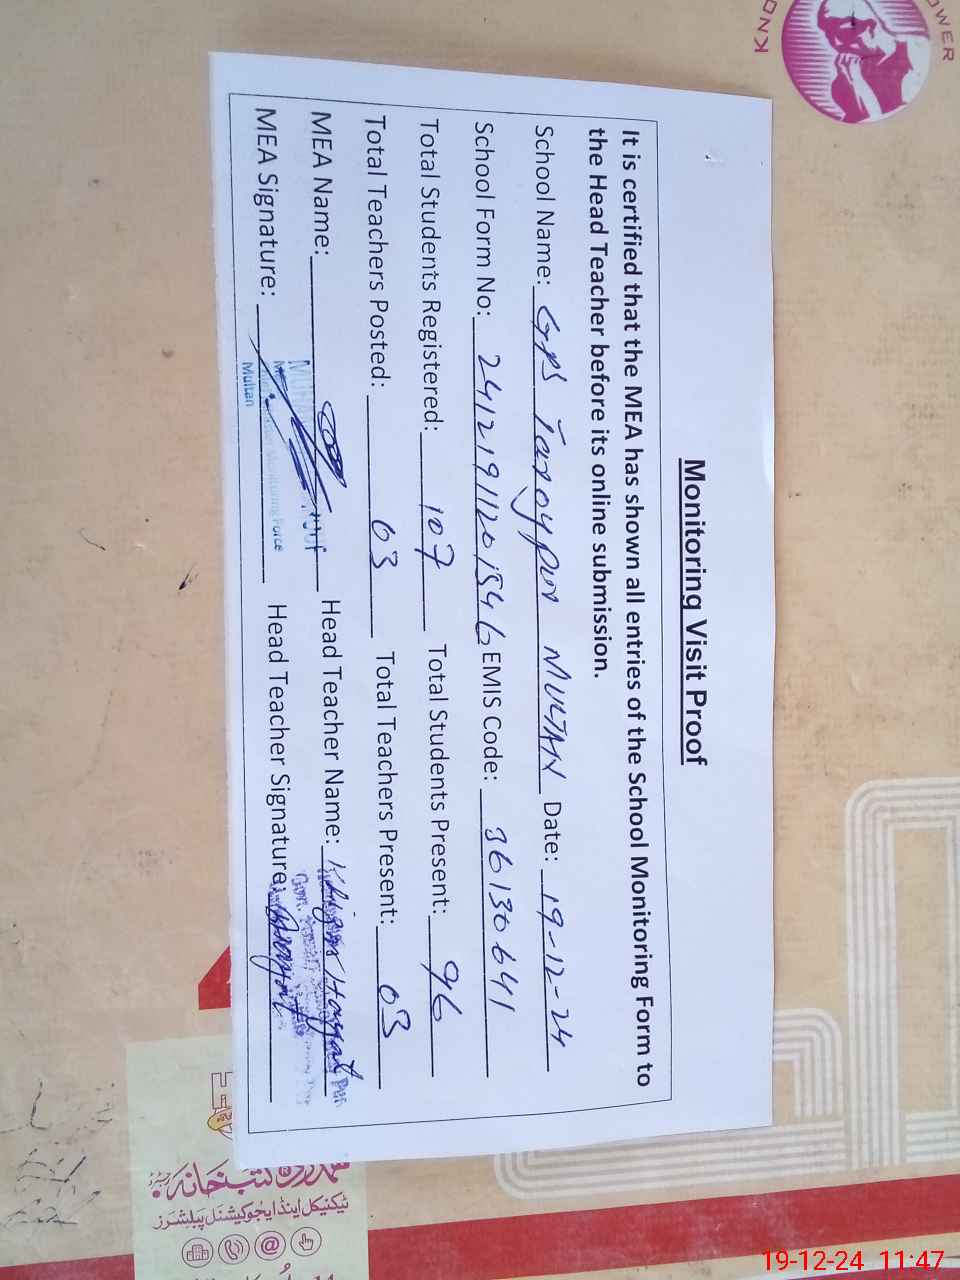 Monitoring Visit Proof
It is certified that the MEA has shown all entries of the School Monitoring Form to
the Head Teacher before its online submission.
School Name: GPS MULTAN Date: 19-12-24
School Form No: EMIS Code: 36130641
Total Students Registered: 107 Total Students Present: 96
Total Teachers Posted: 03 Total Teachers Present: 03
MEA Name: Head Teacher Name: Hayat
MEA Signature: Head Teacher Signature:
Monitoring Force
Multan
OWER
KNO
کتب خانہ
ٹیکنیکل اینڈ ایجوکیشنل پبلشرز
19-12-24 11:47